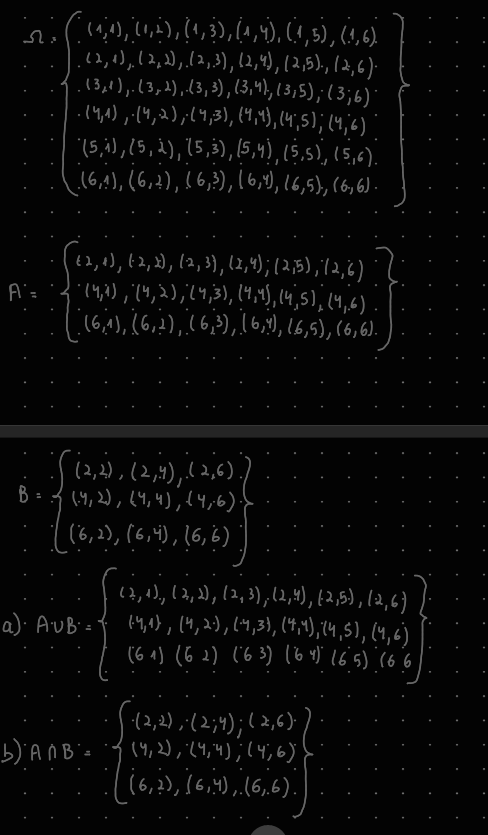 Ω = { (1,1), (1,2), (1,3), (1,4), (1,5), (1,6)
(2,1), (2,2), (2,3), (2,4), (2,5), (2,6)
(3,1), (3,2), (3,3), (3,4), (3,5), (3,6)
(4,1), (4,2), (4,3), (4,4), (4,5), (4,6)
(5,1), (5,2), (5,3), (5,4), (5,5), (5,6)
(6,1), (6,2), (6,3), (6,4), (6,5), (6,6) }
A = { (2,1), (2,2), (2,3), (2,4), (2,5), (2,6)
(4,1), (4,2), (4,3), (4,4), (4,5), (4,6)
(6,1), (6,2), (6,3), (6,4), (6,5), (6,6) }
B = { (2,2), (2,4), (2,6)
(4,2), (4,4), (4,6)
(6,2), (6,4), (6,6) }
a) A∪B = { (2,1), (2,2), (2,3), (2,4), (2,5), (2,6)
(4,1), (4,2), (4,3), (4,4), (4,5), (4,6)
(6 1) (6 2) (6 3) (6 4) (6 5) (6 6 }
b) A∩B = { (2,2), (2,4), (2,6)
(4,2), (4,4), (4,6)
(6,2), (6,4), (6,6) }